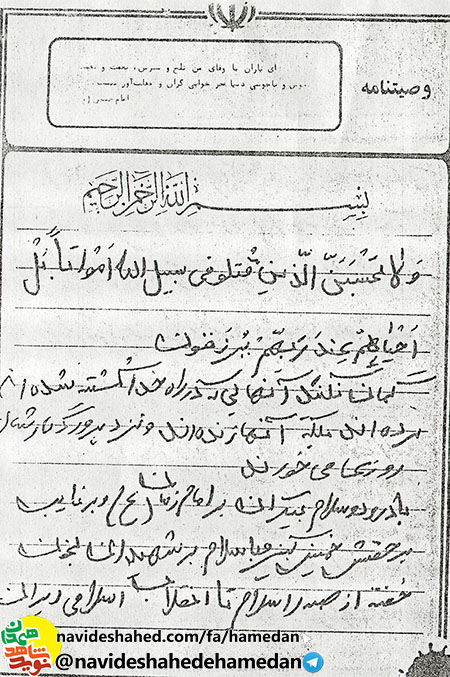 وصیتنامه
ای یاران با وفای من تلخ و شیرین، نعمت و نقمت
دنیا جز خوابی گران و غفلت‌آور نیست
امام خمینی
بسم الله الرحمن الرحیم
وَلا تَحْسَبَنَّ الَّذینَ قُتِلو فی سبیل الله اَمْواتاً بَلْ
اَحْیاءٌ عِنْدَ رَبِّهِمْ یُرْزَقونَ
گمان نکنید آنهایی که در راه خدا کشته شده اند
مرده اند بلکه آنها زنده اند و نزد پروردگارشان
روزی می خورند
با درود و سلام بیکران بر امام زمان (عج) و بر نایب
بر حقش خمینی کبیر و با سلام بر شهیدان
خفته از صدر اسلام تا انقلاب اسلامی ایران
navideshahed.com/fa/hamedan
@navideshahedehamedan
نوید شاهد همدان